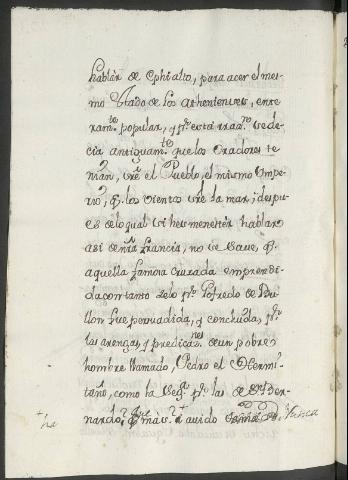 hablàr de Ephialto, para acer el mes-
mo Stado de los Athenienses, ente
ramte. popular, y pr. esta rraçon. se de-
cia antiguamte. que los Oradores te
nian, sre. el Pueblo, el mismo Impe-
rio, q. los vientos sre. la mar; despu-
es de lo qual si hes menestèr hablar
asi de nrã. Francia, no se save, q.
aquella famosa Cruzada emprendi-
da con tanto zelo pr. Gofredo de Bu-
llon fue persuadida, y concluida, pr.
las arengas, y predicanes. de un pobre
hombre llamado, Pedro el Hermi-
taño, como la Segda. pr. las de Sn. Ber-
nardo, que mas avido